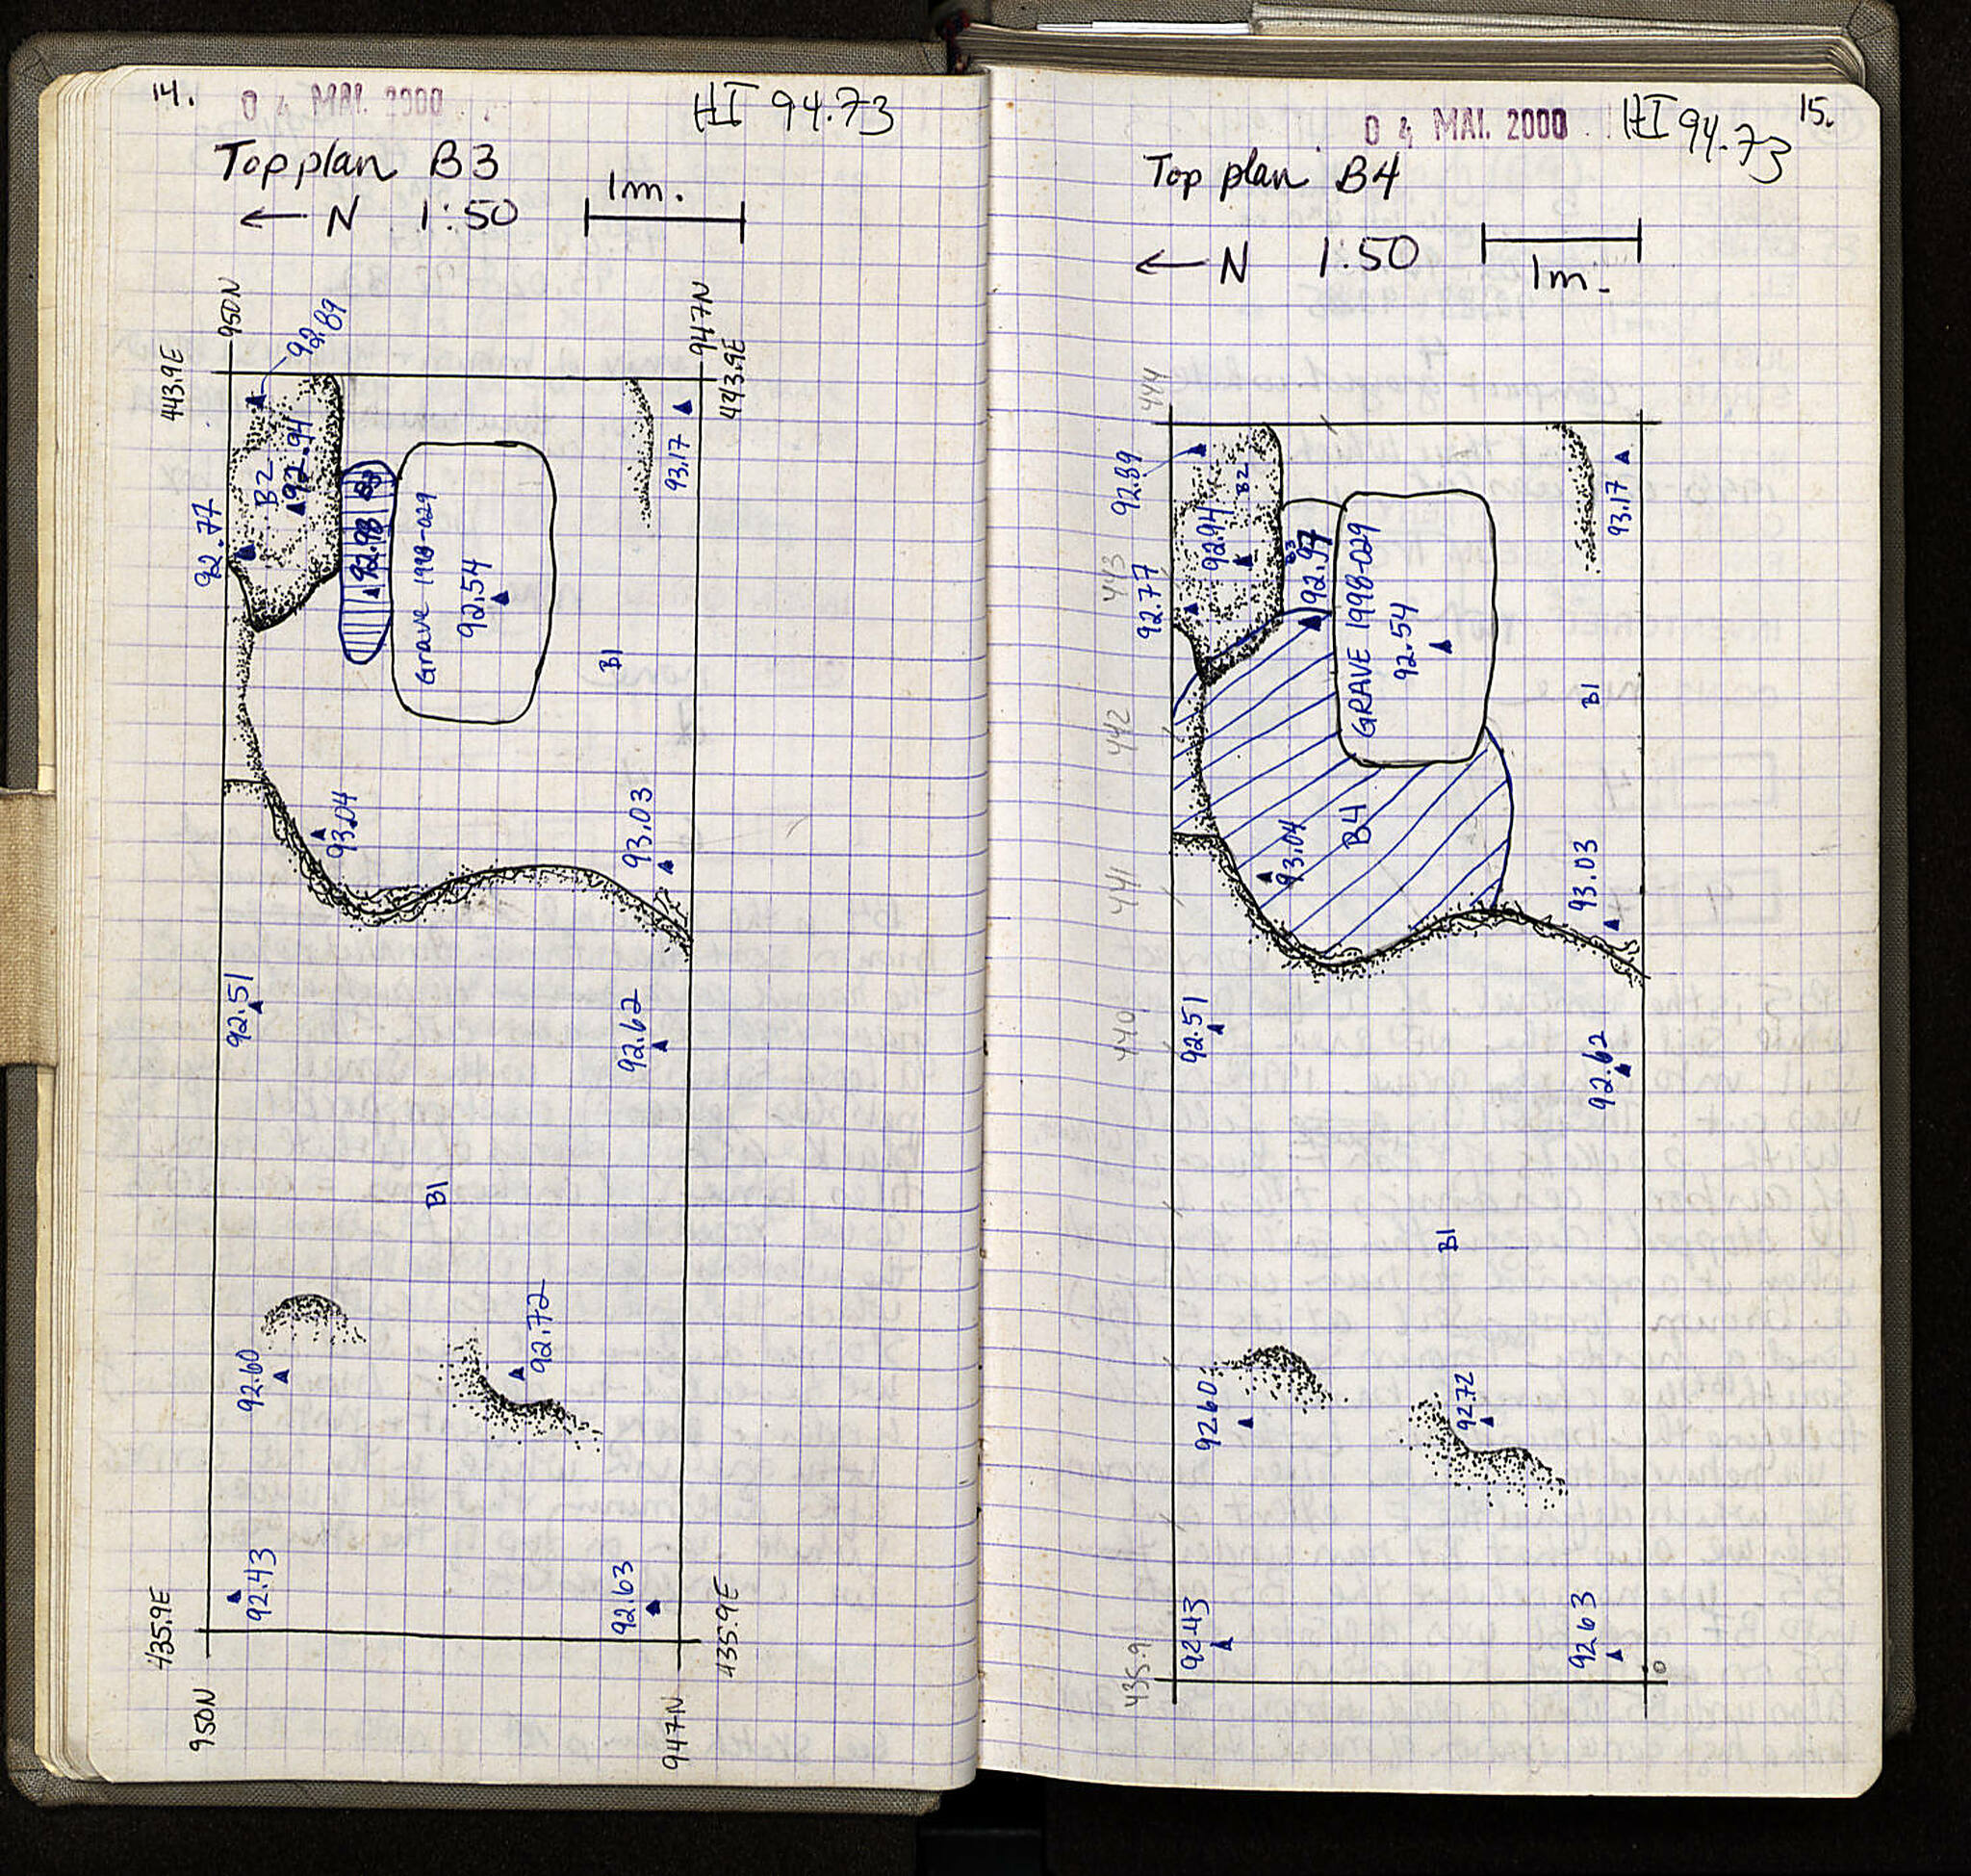 14.
0 4 MAI. 2000
HI 94.73
Top plan B3
← N 1:50
1m.
950N
947N
443.9E
443.9E
92.89
B2
92.94
92.77
B3
92.98
Grave 1998-029
92.54
93.17
B1
93.04
93.03
92.51
92.62
B1
92.60
92.72
92.43
92.63
435.9E
435.9E
950N
947N
15.
0 4 MAI. 2000
HI 94.73
Top plan B4
← N 1:50
1m.
444
443
442
441
440
435.9
92.89
92.94
B2
92.77
B3
92.97
GRAVE 1998-029
92.54
93.17
B1
93.04
B4
93.03
92.51
92.62
B1
92.60
92.72
92.43
92.63